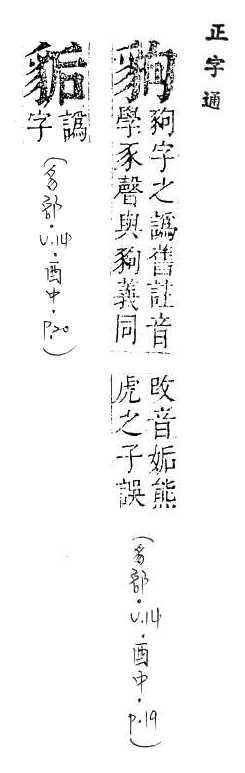 正字通
豿
豞字之譌舊註音
學豕聲與豞義同
改音姤熊
虎之子誤
(豸部·V.14·酉中·P.19)
譌
字
(豸部·V.14·酉中·P.20)